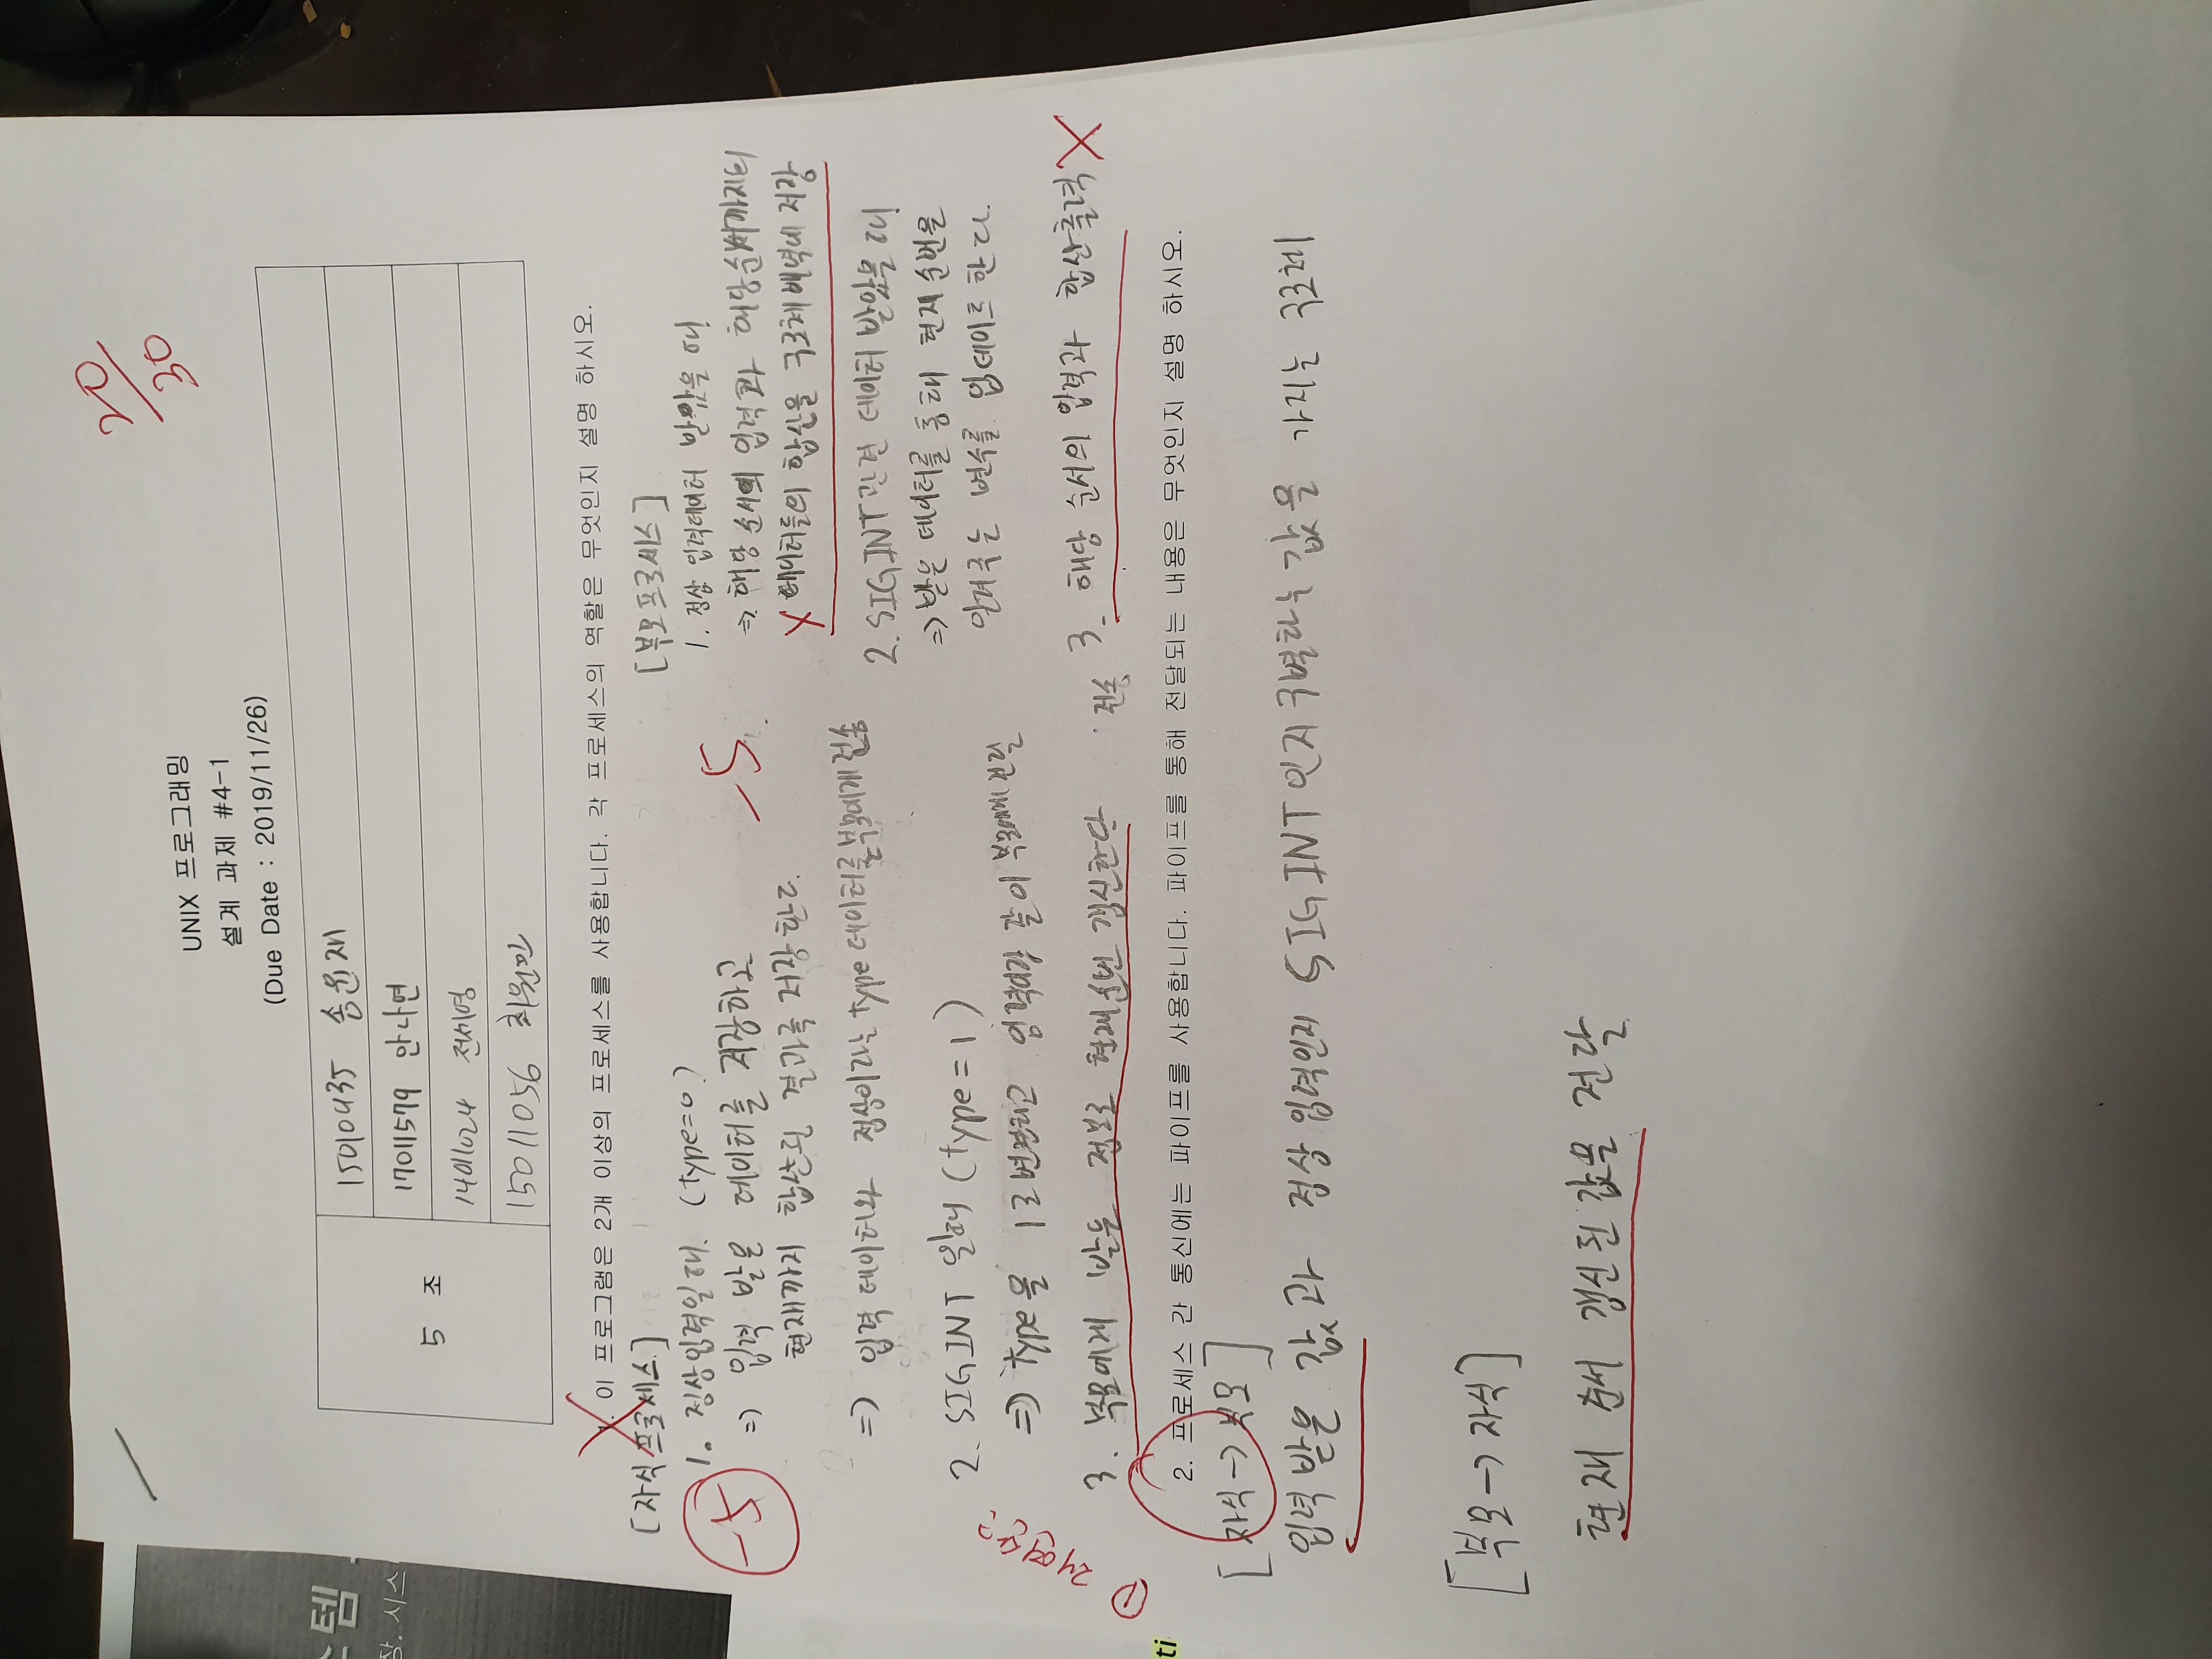 20
30
UNIX 프로그래밍
설계 과제 #4-1
(Due Date : 2019/11/26)
5 조
15010435 송윤재
17011579 안나연
14011024 전세영
15011056 최원민
스템
장. 시스
1. 이 프로그램은 2개 이상의 프로세스를 사용합니다. 각 프로세스의 역할은 무엇인지 설명 하시오.
[자식 프로세스]
-5
1. 정상입력일때. (type=0)
=> 입력 받은 데이터를 저장하고
현재까지 합산된 결과를 저장 한다.
=> 입력 데이터와 정상이라는 type 데이터를 부모에게 전송
2. SIGINT 일때 (type=1)
=> type을 1로 변환하고 입력이랑 같이 부모에게 전달
3. 부모에게 받은 정보로 현재순번 갱신한다
-5.
[부모프로세스]
1. 정상 입력데이터 받았을 때
=> 해당 순서의 입력과 해당순서까지의
X 데이터들의 합산을 구조체배열에 저장
2. SIGINT 관련 데이터 받았을 때
=> 받은 데이터를 통해 현재 순번을
알려주는 변수를 업데이트 한다.
3. 해당 순서의 입력과 합산출력 X
전송
① 재연산?
ti
2. 프로세스 간 통신에는 파이프를 사용합니다. 파이프를 통해 전달되는 내용은 무엇인지 설명 하시오.
[자식 -> 부모]
입력 받은 값과 정상 입력인지 SIGINT인지 구별하는 값을 가지는 구조체
[부모 -> 자식]
현재 순서 갱신된 값을 전달